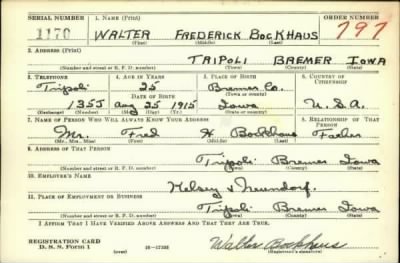 SERIAL NUMBER 1. NAME (Print) ORDER NUMBER
1170 WALTER FREDERICK BOCKHAUS 797
(First) (Middle) (Last)
2. ADDRESS (Print)
TRIPOLI BREMER IOWA
(Number and street or R. F. D. number) (Town) (County) (State)
3. TELEPHONE 4. AGE IN YEARS 5. PLACE OF BIRTH 6. COUNTRY OF CITIZENSHIP
Tripoli 25 Bremer Co.
DATE OF BIRTH (Town or county)
135J Aug 25 1915 Iowa U.S.A.
(Exchange) (Number) (Mo.) (Day) (Yr.) (State or country)
7. NAME OF PERSON WHO WILL ALWAYS KNOW YOUR ADDRESS 8. RELATIONSHIP OF THAT PERSON
Mr. Fred H Bockhaus Father
(Mr., Mrs., Miss) (First) (Middle) (Last)
9. ADDRESS OF THAT PERSON
Tripoli Bremer Iowa
(Number and street or R. F. D. number) (Town) (County) (State)
10. EMPLOYER'S NAME
Kelsey & Neundorf
11. PLACE OF EMPLOYMENT OR BUSINESS
Tripoli Bremer Iowa
(Number and street or R. F. D. number) (Town) (County) (State)
I AFFIRM THAT I HAVE VERIFIED ABOVE ANSWERS AND THAT THEY ARE TRUE.
REGISTRATION CARD
D. S. S. Form 1 (over) 16—17105 Walter Bockhaus
(Registrant's signature)